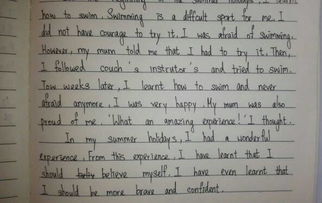 the beginning of the summer holidays, I learnt
how to swim. Swimming is a difficult sport for me. I
did not have courage to try it. I was afraid of swimming.
However, my mum told me that I had to try it. Then,
I followed couch's instrutor's and tried to swim.
Tow weeks later, I learnt how to swim and never
afraid anymore. I was very happy. My mum was also
proud of me. 'What an amazing experience!' I thought.
In my summer holidays, I had a wonderful
experience. From this experience, I have learnt that I
should believe myself. I have even learnt that
I should be more brave and confident.